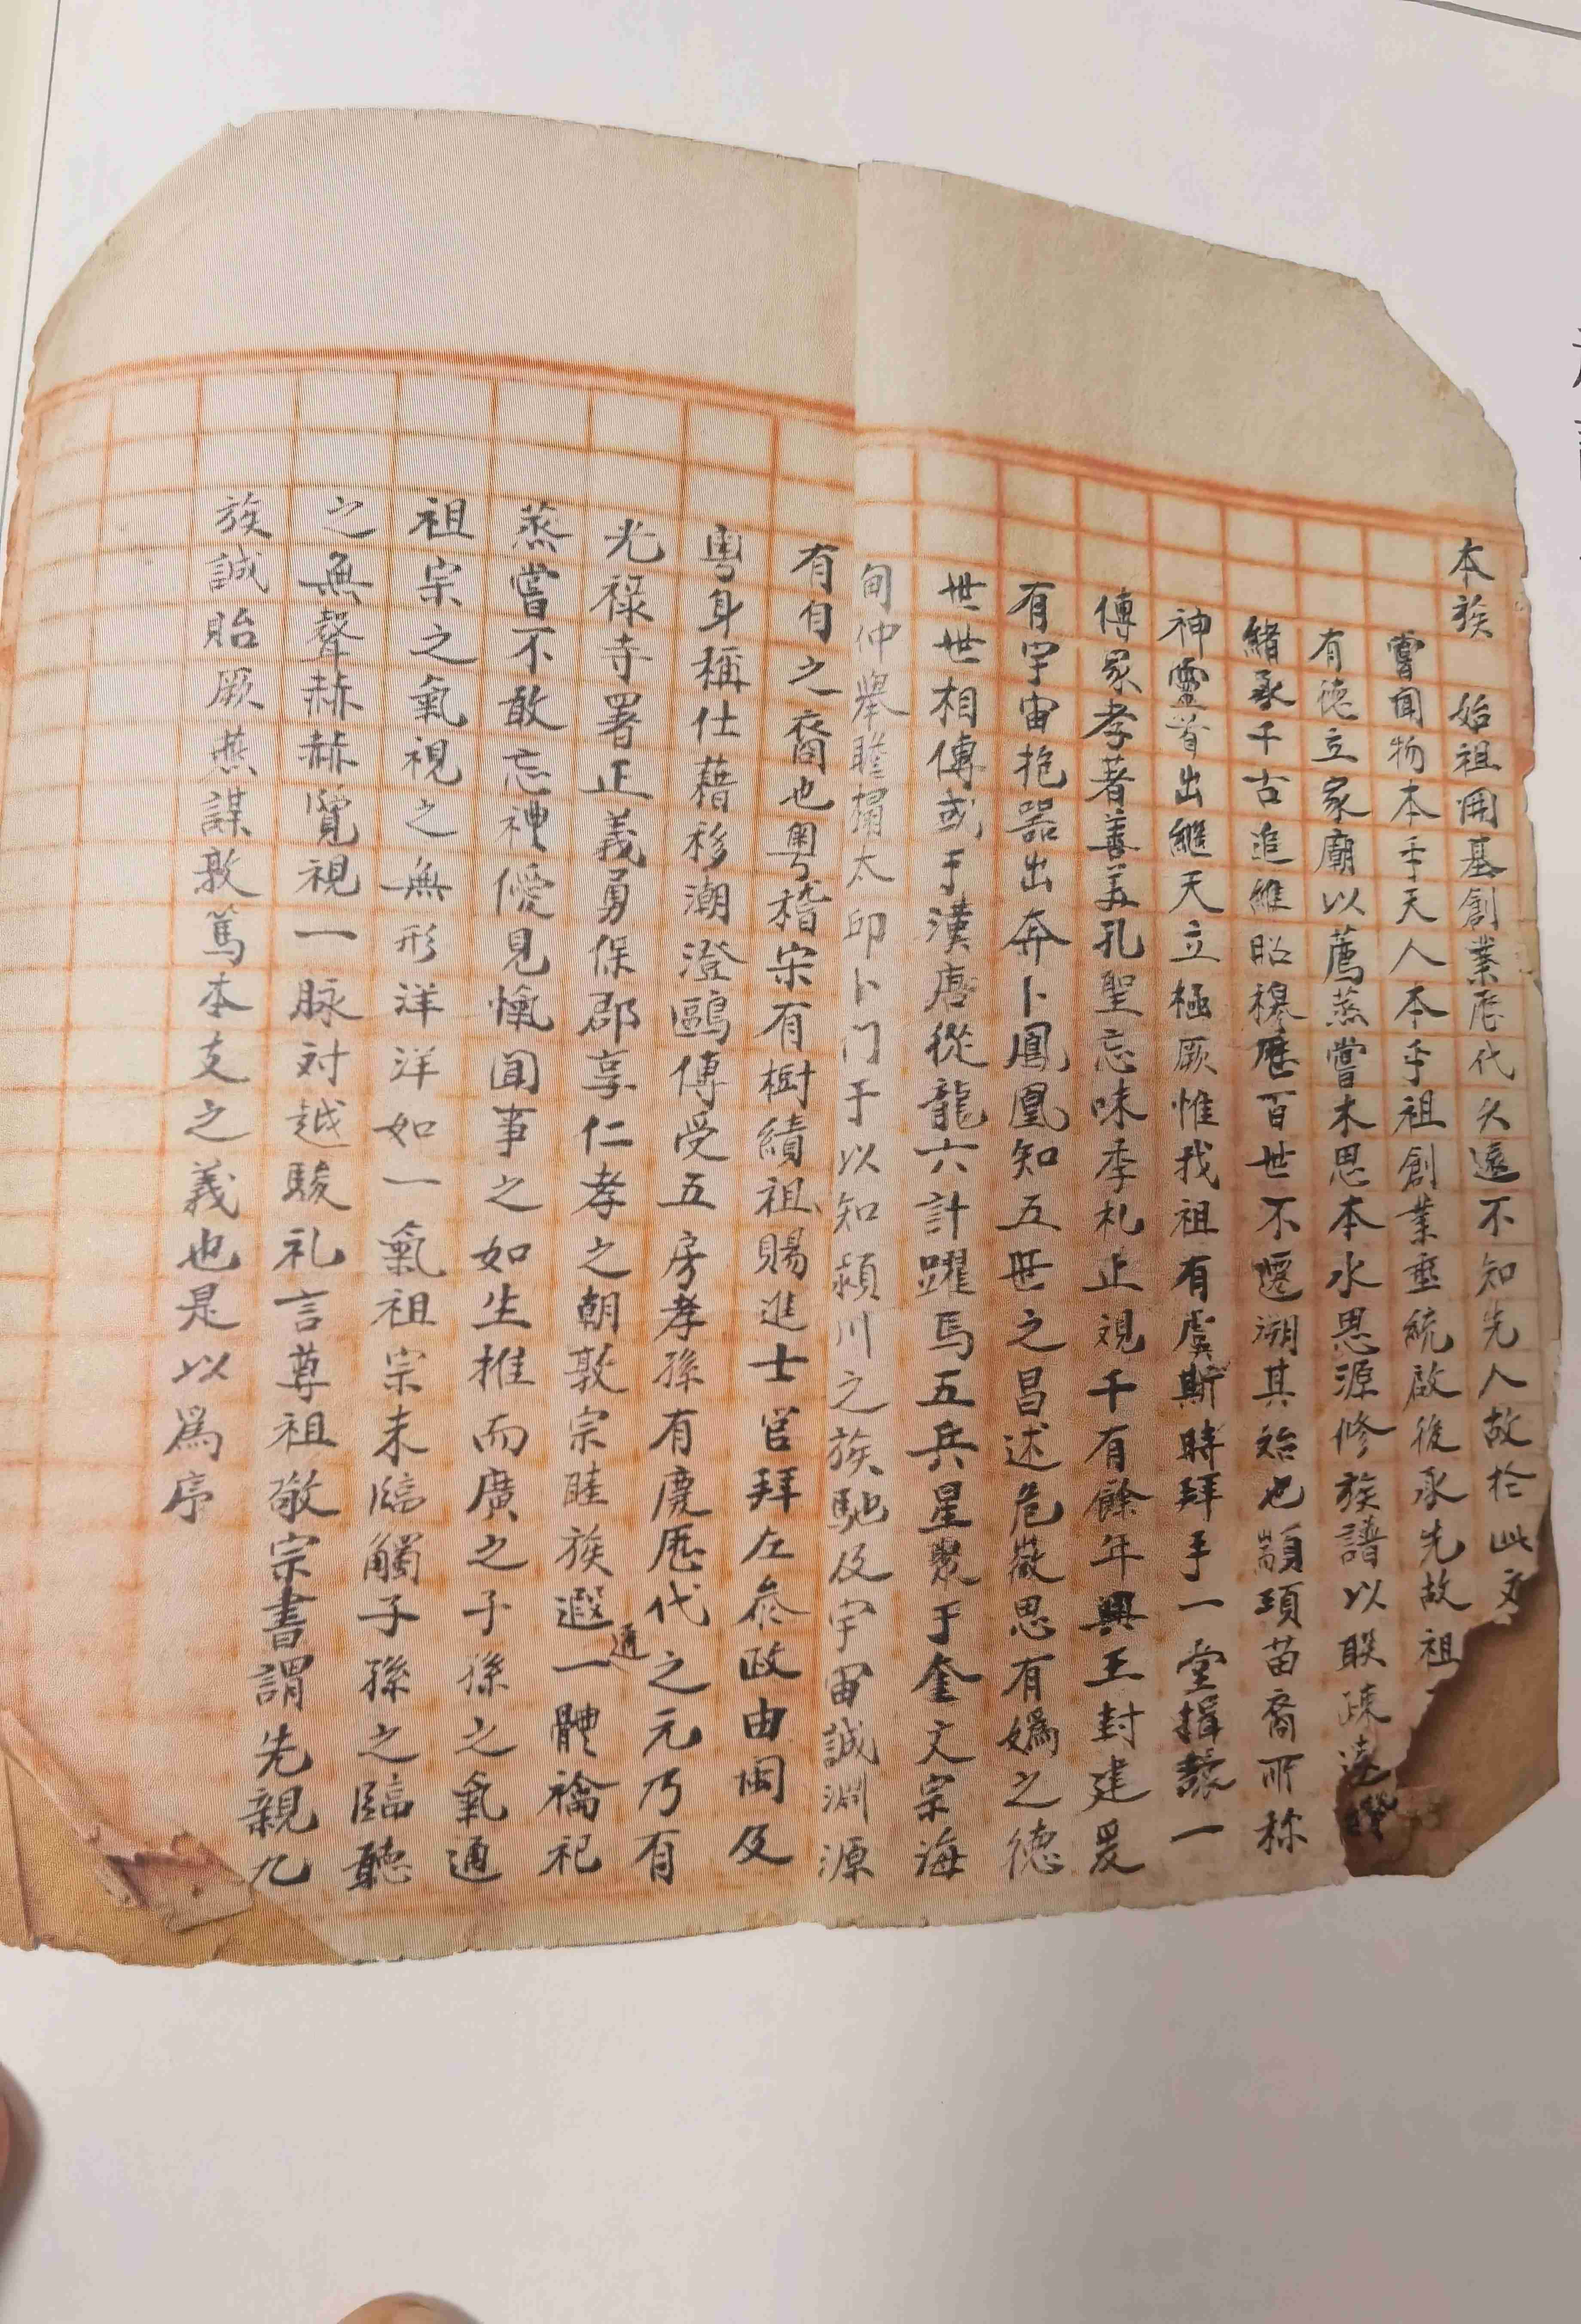 本族 始祖開基創業歷代久遠不知先人故於此文
嘗聞物本乎天人本乎祖創業垂統啟後承先故祖
有德立家廟以薦蒸嘗木思本水思源修族譜以聯疎遠
緒承千古追維昭穆歷百世不遷溯其始也顓頊苗裔所称
神靈首出繼天立極厥惟我祖有虞斯時拜手一堂揖讓一
傳家孝著善美孔聖忘味季札止观千有餘年興王封建爰
有宇宙抱器出奔卜鳳凰知五世之昌述危微思有媯之德
世世相傳或于漢唐從龍六計躍馬五兵星聚于奎文宗海
甸仲舉瞻榻太邱卜门于以知潁川之族馳及宇宙誠淵源
有自之裔也粵稽宋有樹績祖賜進士官拜左叅政由閩及
粵身稱仕藉移潮澄鷗傳受五房孝孫有慶歷代之元乃有
光祿寺署正義勇保郡享仁孝之朝敦宗睦族遐通一體禴祀
蒸嘗不敢忘禮優見愾聞事之如生推而廣之子孫之氣通
祖宗之氣視之無形洋洋如一氣祖宗未臨觸子孫之臨聽
之無聲赫赫覽視一脉对越駿礼言尊祖敬宗書謂先親九
族誠貽厥燕謀敦篤本支之義也是以為序